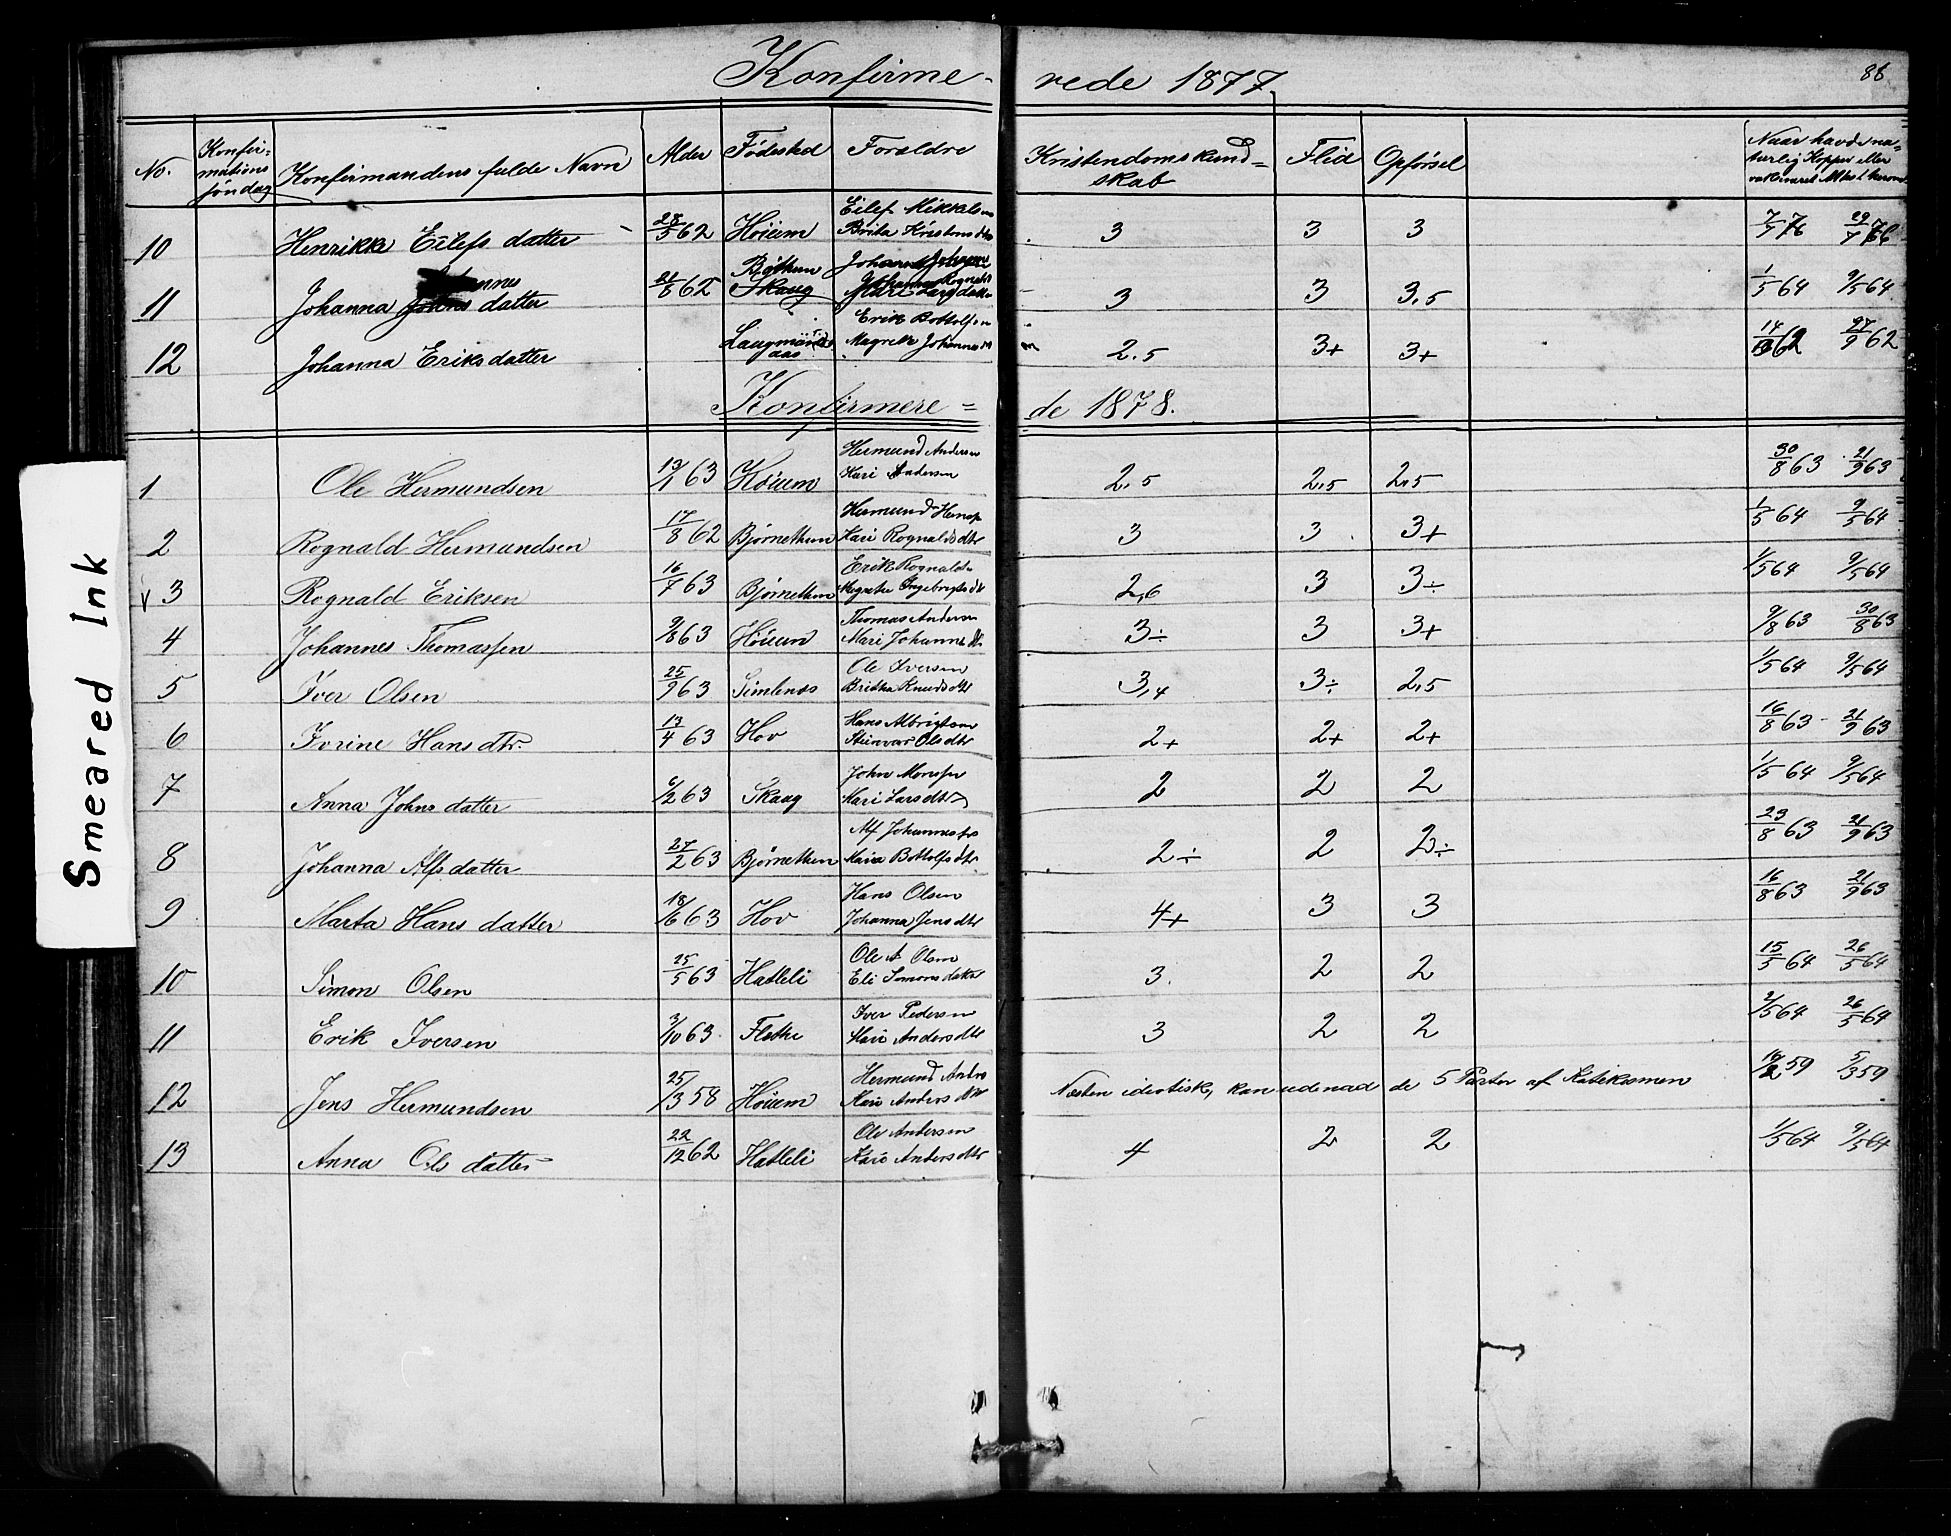 Konfirme- rede 1877. 86
No. Konfir=mations søndag Konfirmandens fulde Navn Alder Fødested Forældre Kristendomskund=skab Flid Opførsel Naar havd na=turlig Kopper eller
10 Henrikka Eilefs datter 28/5 62 Høium Eilef Mikkels Brita Kristens dtr 3 3 3 7/7 76 29/7 76
11 Johanna Johannes datter /8 62 Skaug Mari Lars datter 3 3 3,5 1/5 64 9/5 64
12 Johanna Eriks datter Erik Bottolfsen Magrete Johannesdt 2.5 3+ 3+ 62 27/9 62
Konfirmere= de 1878.
1 Ole Hermundsen 13/1 63 Høium Hermund Andersen Kari Andersen 2,5 2,5 2,5 30/8 63 21/9 63
2 Rognald Hermundsen 17/8 62 Bjørnethun Hermund Hansen Kari Rognalds dtr 3 3 3+ 1/5 64 9/5 64
v 3 Rognald Eriksen 16/7 63 Bjørnethun Erik Rognalds Magrethe Ingebrigts dtr 2,6 3 3÷ 1/5 64 9/5 64
4 Johannes Thomassen 9/8 63 Høium Thomas Andersen Mari Johannes dtr 3÷ 3 3+ 9/8 63 30/8 63
5 Iver Olsen 25/9 63 Simlenæs Ole Iversen Britha Knuds dtr 3,4 3÷ 2,5 1/5 64 9/5 64
6 Ivrine Hans dtr. 13/4 63 Hov Hans Albrigtsen Steinvor Ols dtr 2+ 2+ 2+ 16/8 63 21/9 63
7 Anna Johns datter 6/2 63 Skaug John Monsen Mari Lars dtr 2 2 2 1/5 64 9/5 64
8 Johanna Alfs datter 27/2 63 Bjørnethun Alf Johannes Maria Bottolfs dtr 2÷ 2 2÷ 23/8 63 21/9 63
9 Marta Hans datter 18/6 63 Hov Hans Olsen Johanna Jens dtr 4+ 3 3 16/8 63 21/9 63
10 Simon Olsen 25/5 63 Hatleli Ole A Olsen Eli Simons datter 3. 2 2 15/5 64 26/5 64
11 Erik Iversen 3/10 63 Flethe Iver Pedersen Mari Anders dtr 3 2 2 2/5 64 26/5 64
12 Jens Hermundsen 25/3 58 Høium Hermund Anders Kari Anders dtr Næsten idiotisk, kan udenad de 5 Parter af Katekismen /2 59 5/3 59
13 Anna Ols datter 22/12 62 Hatleli Ole Andersen Kari Anders dtr 4 2 2 1/5 64 9/5 64
Smeared Ink